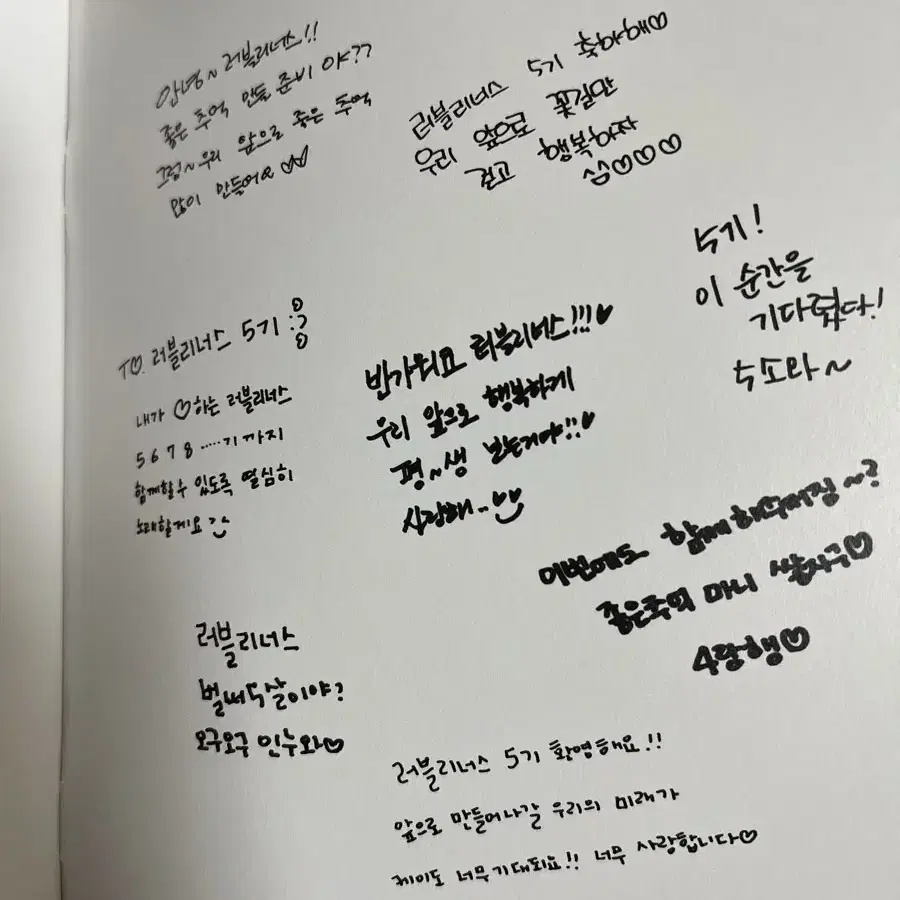 안녕~ 러블리너스!!
좋은 추억 만들 준비 야??
그럼~ 우리 앞으로 좋은 추억
많이 만들어요♡♡
러블리너스 5기 축하해♡
우리 앞으로 꽃길만
걷고 행복하자
♡♡♡
5기!
이 순간을
기다렸다!
수소와~
TO. 러블리너스 5기
내가 ♡하는 러블리너스
5 6 7 8 ····· 기까지
함께할 수 있도록 열심히
노래할게요
반가워요 러블리너스!!!♥
우리 앞으로 행복하게
평~생 보는거야!!♥
사랑해..
이번에도 함께해
좋은추억 마니 쌓자구♡
4랑행♡
러블리너스
벌써 5살이야?
오구오구 인누와♡
러블리너스 5기 환영해요!!
앞으로 만들어나갈 우리의 미래가
케이도 너무 기대되요!! 너무 사랑합니다♡